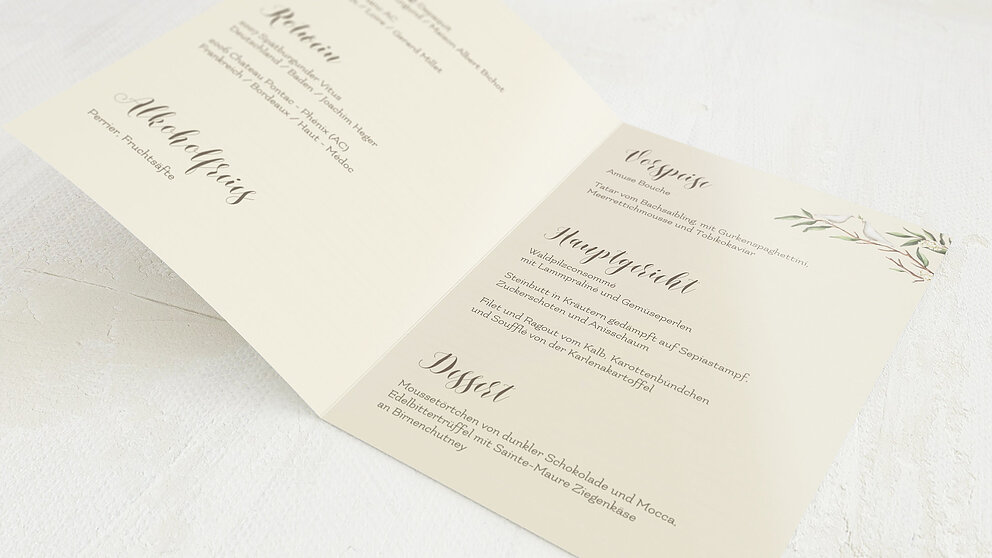 Gerard Millet
Maison Albert Bichot
Rotwein
Spätburgunder Vitus
Deutschland / Baden / Joachim Heger
2006 Chateau Pontac - Phenix (AC)
Frankreich / Bordeaux / Haut - Medoc
Alkoholfreies
Perrier, Fruchtsäfte
Vorspeise
Amuse Bouche
Tatar vom Bachsaibling, mit Gurkenspaghettini,
Meerrettichmousse und Tobikokaviar
Hauptgericht
Waldpilzconsomme
mit Lammpraline und Gemüseperlen
Steinbutt in Kräutern gedampft auf Sepiastampf,
Zuckerschoten und Anisschaum
Filet und Ragout vom Kalb, Karottenbündchen
und Souffle von der Karlenakartoffel
Dessert
Moussetörtchen von dunkler Schokolade und Mocca,
Edelbittertrüffel mit Sainte-Maure Ziegenkäse
an Birnenchutney